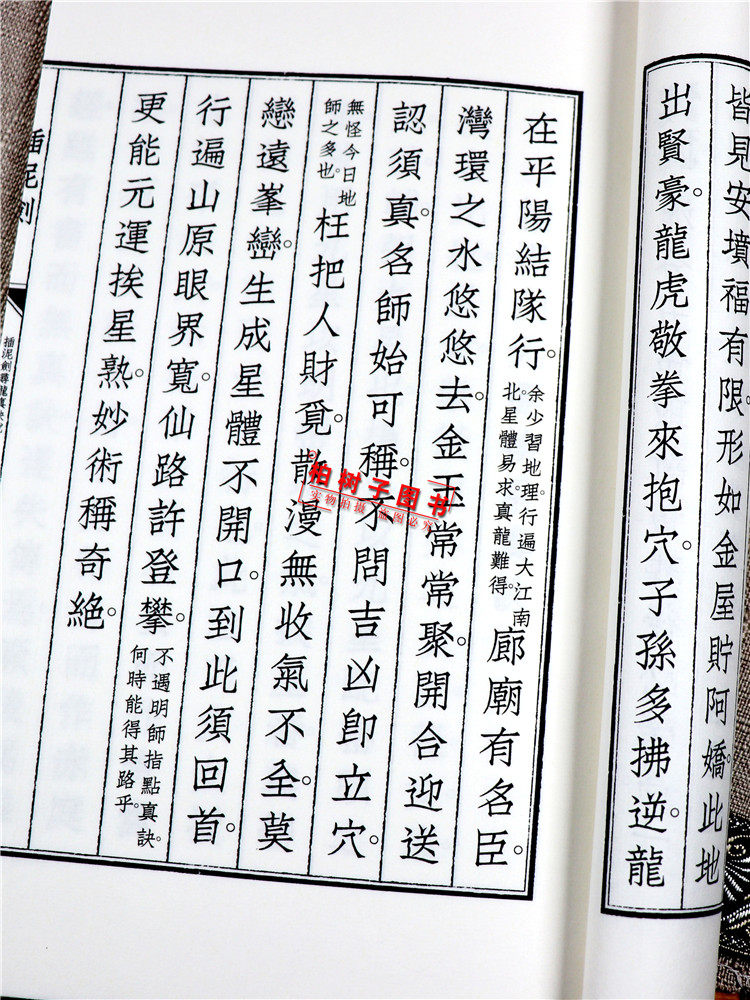 皆見安墳福有限。形如金屋貯阿嬌。此地
出賢豪。龍虎敬拳來抱穴。子孫多拂逆。龍
在平陽結隊行。余少習地理。行遍大江南北。星體易求。真龍難得。廊廟有名臣。
灣環之水悠悠去。金玉常常聚。開合迎送
認須真。名師始可稱。不問吉凶卽立穴。
無怪今日地師之多也。枉把人財覓。散漫無收氣不全。莫
戀遠峯巒。生成星體不開口。到此須回首。
行遍山原眼界寬。仙路許登攀。不遇明師指點真訣。何時能得其路乎。
更能元運挨星熟。妙術稱奇絕。
插泥劍
柏树子图书
实物拍摄 盗图必究